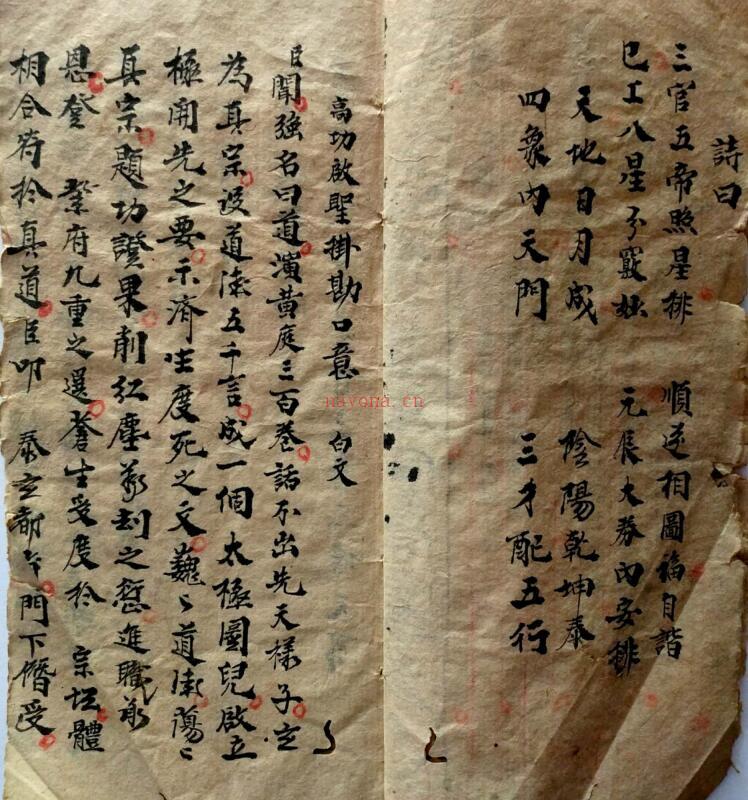 詩曰
三官五帝照星排　順逆相圖福自諧
巳工八星分竅妙　元辰大券內安排
天地日月成　陰陽乾坤泰
四象內天門　三才配五行
高功啟聖掛勘口意　白文
臣聞強名曰道演黃庭三百卷話不出先天樣子立
為真宗設道德五千言成一個太極圖兒啟立
極開先之要示濟生度死之文巍〻道德蕩〻
真宗題功證果削紅塵萬刼之愆進職承
恩登　紫府九重之選蒼生受度於　宗坛體
相合符於真道臣叩　泰玄都午門下僭受
nayona.cn